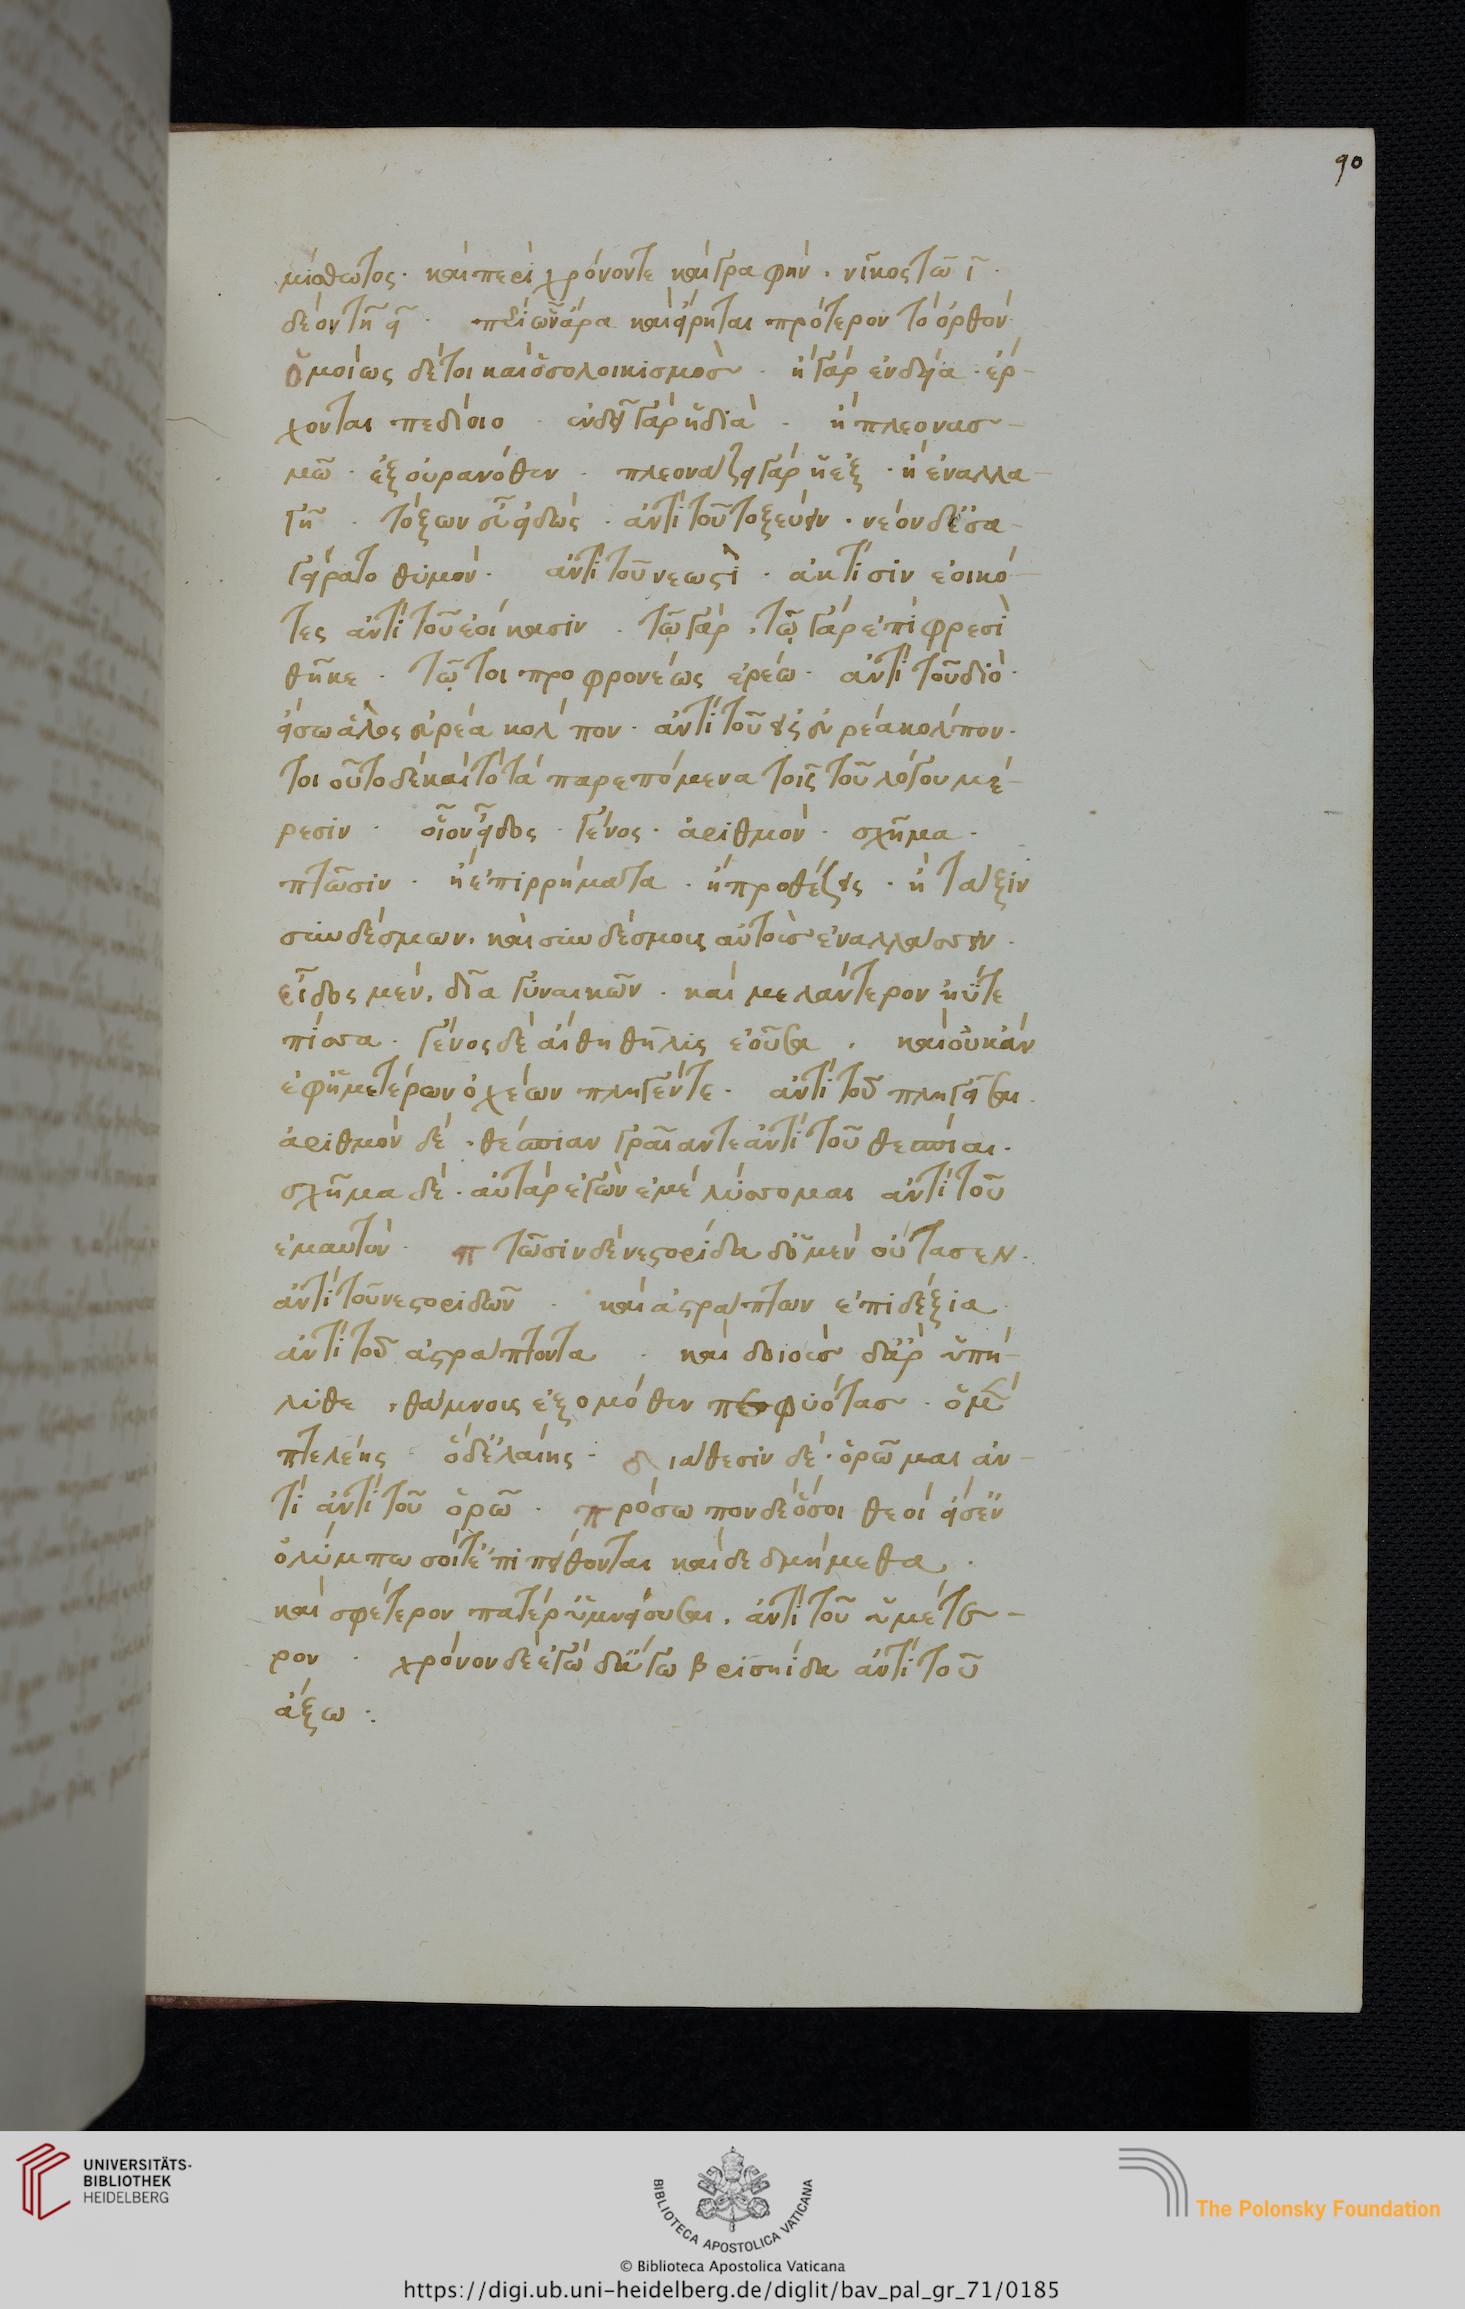 90
μίσθωτος· καὶ περὶ χρόνον τε καὶ γραφὴν, νῖκος τῶ ῑ·
δέον τῆ
ει· περὶ ὧν ἄρα καὶ εἴρηται πρότερον τὸ ὀρθόν·
ὁμοίως δέ τοι καὶ ὁ σολοικισμὸσ· ἢ γὰρ ἐνδεία· ἔρ-
χονται πεδίοιο· ἐνδεῖ γὰρ ἡ διὰ· ἢ πλεονασ-
μῶ· ἐξ οὐρανόθεν· πλεονάζει γὰρ ἡ ἐξ· ἢ ἐναλλα-
γῆ· τόξων εὖ εἰδὼς· ἀντὶ τοῦ τοξεύειν· νέον δὲ ἐσα-
γείρατο θυμόν· ἀντὶ τοῦ νεωστὶ· ἀκτίσιν ἐοικό-
τες ἀντὶ τοῦ ἐοίκασιν· τῷ γὰρ, τῷ γὰρ ἐπὶ φρεσὶ
θῆκε· τῷ τοι προφρονέως ἐρέω· ἀντὶ τοῦ διὸ·
εἴσω ἁλὸς εὐρέα κόλπον· ἀντὶ τοῦ εἰς εὐρέα κόλπον·
τοιοῦτο δὲ καὶ τὸ τὰ παρεπόμενα τοῖς τοῦ λόγου μέ-
ρεσιν· οἷον εἶδος· γένος· ἀριθμὸν· σχῆμα·
πτῶσιν· ἢ ἐπιρρήματα· ἢ προθέσεις· ἢ τάξιν
συνδέσμων, καὶ συνδέσμοις αὐτοῖσ ἐναλλάσσειν·
εἶδος μὲν, δῖα γυναικῶν· καὶ μελάντερον ἠΰτε
πίσσα· γένος δὲ αἴθη θῆλις ἐοῦσα, καὶ οὐκ ἂν
ἐφ' ἡμετέρων ὀχέων πληγέντε· ἀντὶ τοῦ πληγεῖσαι
ἀριθμὸν δὲ· θέσπιαν γραῖαν τε ἀντὶ τοῦ θεσπίαι·
σχῆμα δὲ· αὐτὰρ ἐγὼν ἐμὲ λύσσομαι ἀντὶ τοῦ
ἐμαυτὸν· πτῶσιν δὲ νεστορίδα δ' ὁ μὲν οὔτασεν·
ἀντὶ τοῦ νεστοριδῶν· καὶ ἀστράπτων ἐπιδέξια
ἀντὶ τοῦ ἀστράπτοντα· καὶ δοιοὺσ δ' ἂρ ὑπή-
λυθε, θάμνοις ἐξ ὁμόθεν πεφυότασ· ὁ μὲν
πτελέης· ὁ δ' ἐλαίης· διάθεσιν δὲ· ὁρῶμαι ἀν-
τὶ ἀντὶ τοῦ ὁρῶ· πρόσωπον δὲ ὅσοι θεοί εἰσ' ἐν
ὀλύμπω σοί τ' ἐπιπείθονται καὶ δεδμήμεθα·
καὶ σφέτερον πατέρ' ὑμνείουσαι, ἀντὶ τοῦ ὑμέτε-
ρον· χρόνον δὲ ἐγὼ δ' ἄγω βρισηίδα ἀντὶ τοῦ
ἄξω:
UNIVERSITÄTS-
BIBLIOTHEK
HEIDELBERG
BIBLIOTECA APOSTOLICA VATICANA
The Polonsky Foundation
© Biblioteca Apostolica Vaticana
https://digi.ub.uni-heidelberg.de/diglit/bav_pal_gr_71/0185